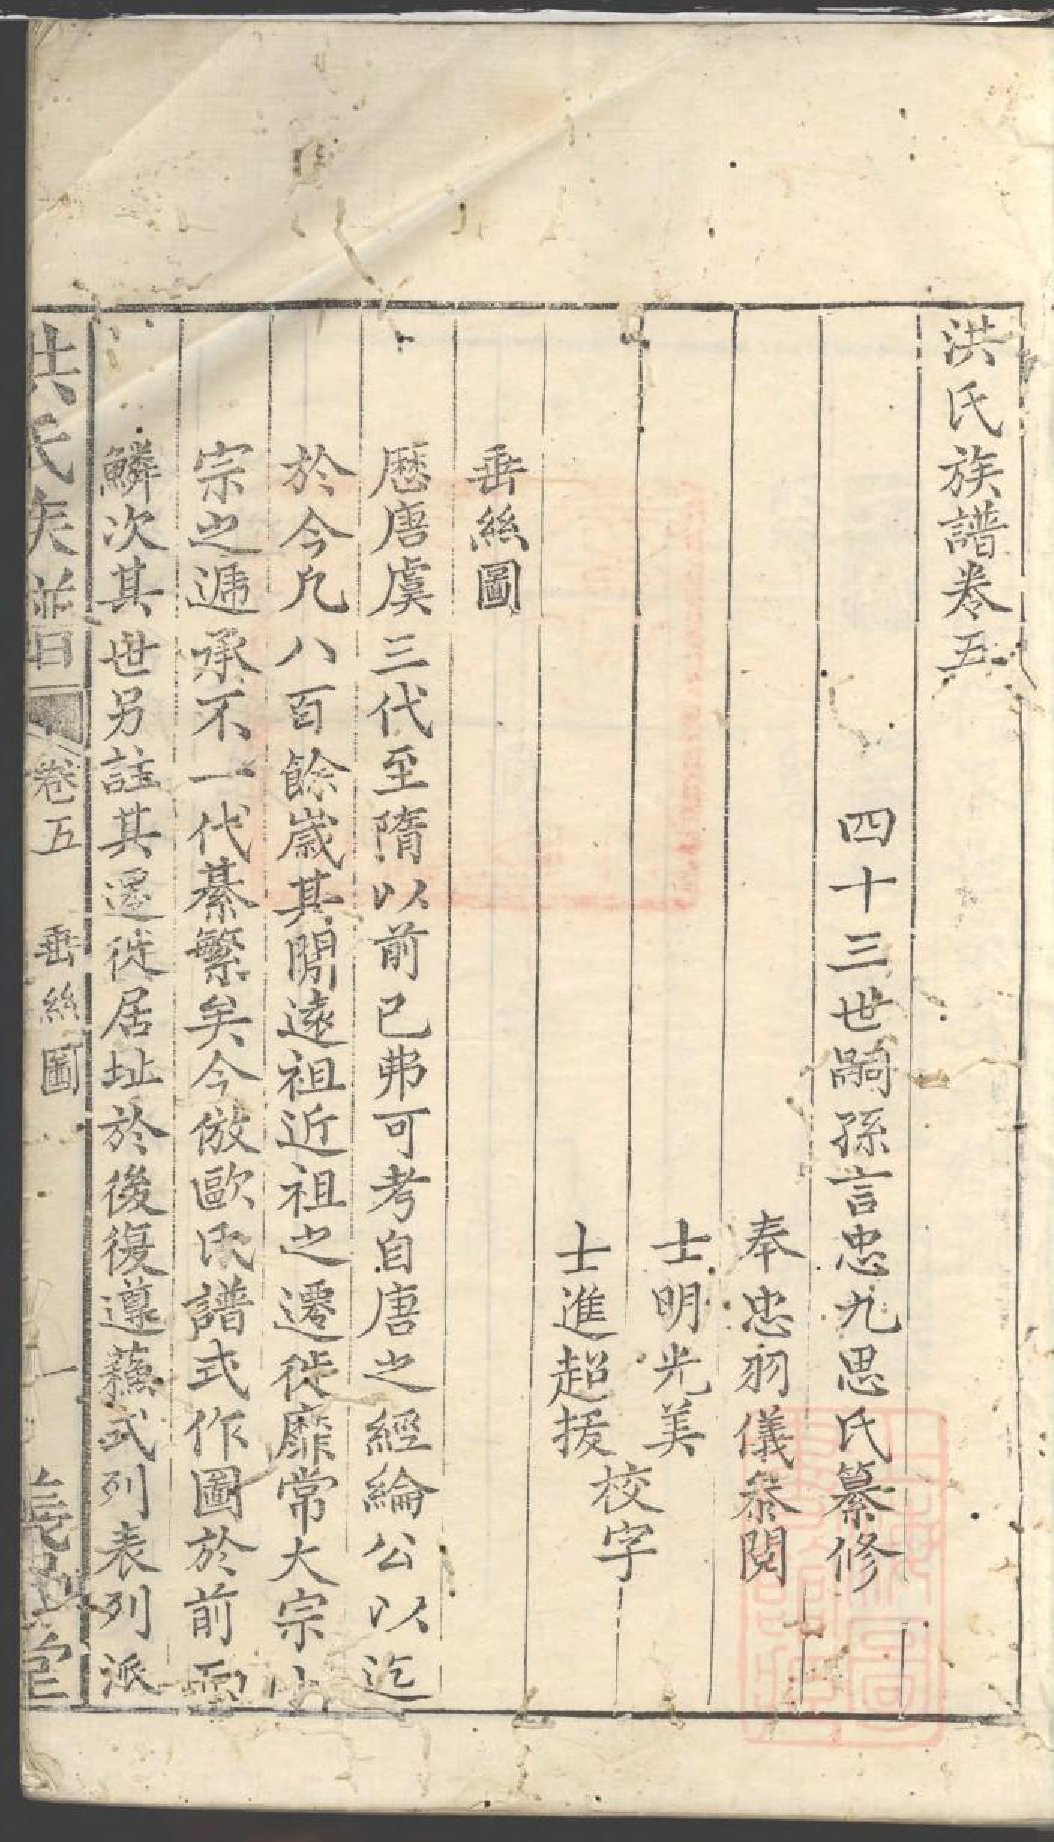 洪氏族譜卷五
四十三世嗣孫言忠九思氏纂修
奉忠羽儀叅閱
士明光美
士進超拔
校字
垂絲圖
歷唐虞三代至隋以前已弗可考自唐之經綸公以迄
於今凡八百餘歲其間遠祖近祖之遷徙靡常大宗小
宗之遞承不一代綦繁矣今倣歐氏譜式作圖於前而
鱗次其世另註其遷徙居址於後復遵蘇式列表列派
洪氏族譜
卷五
垂絲圖
一
堂